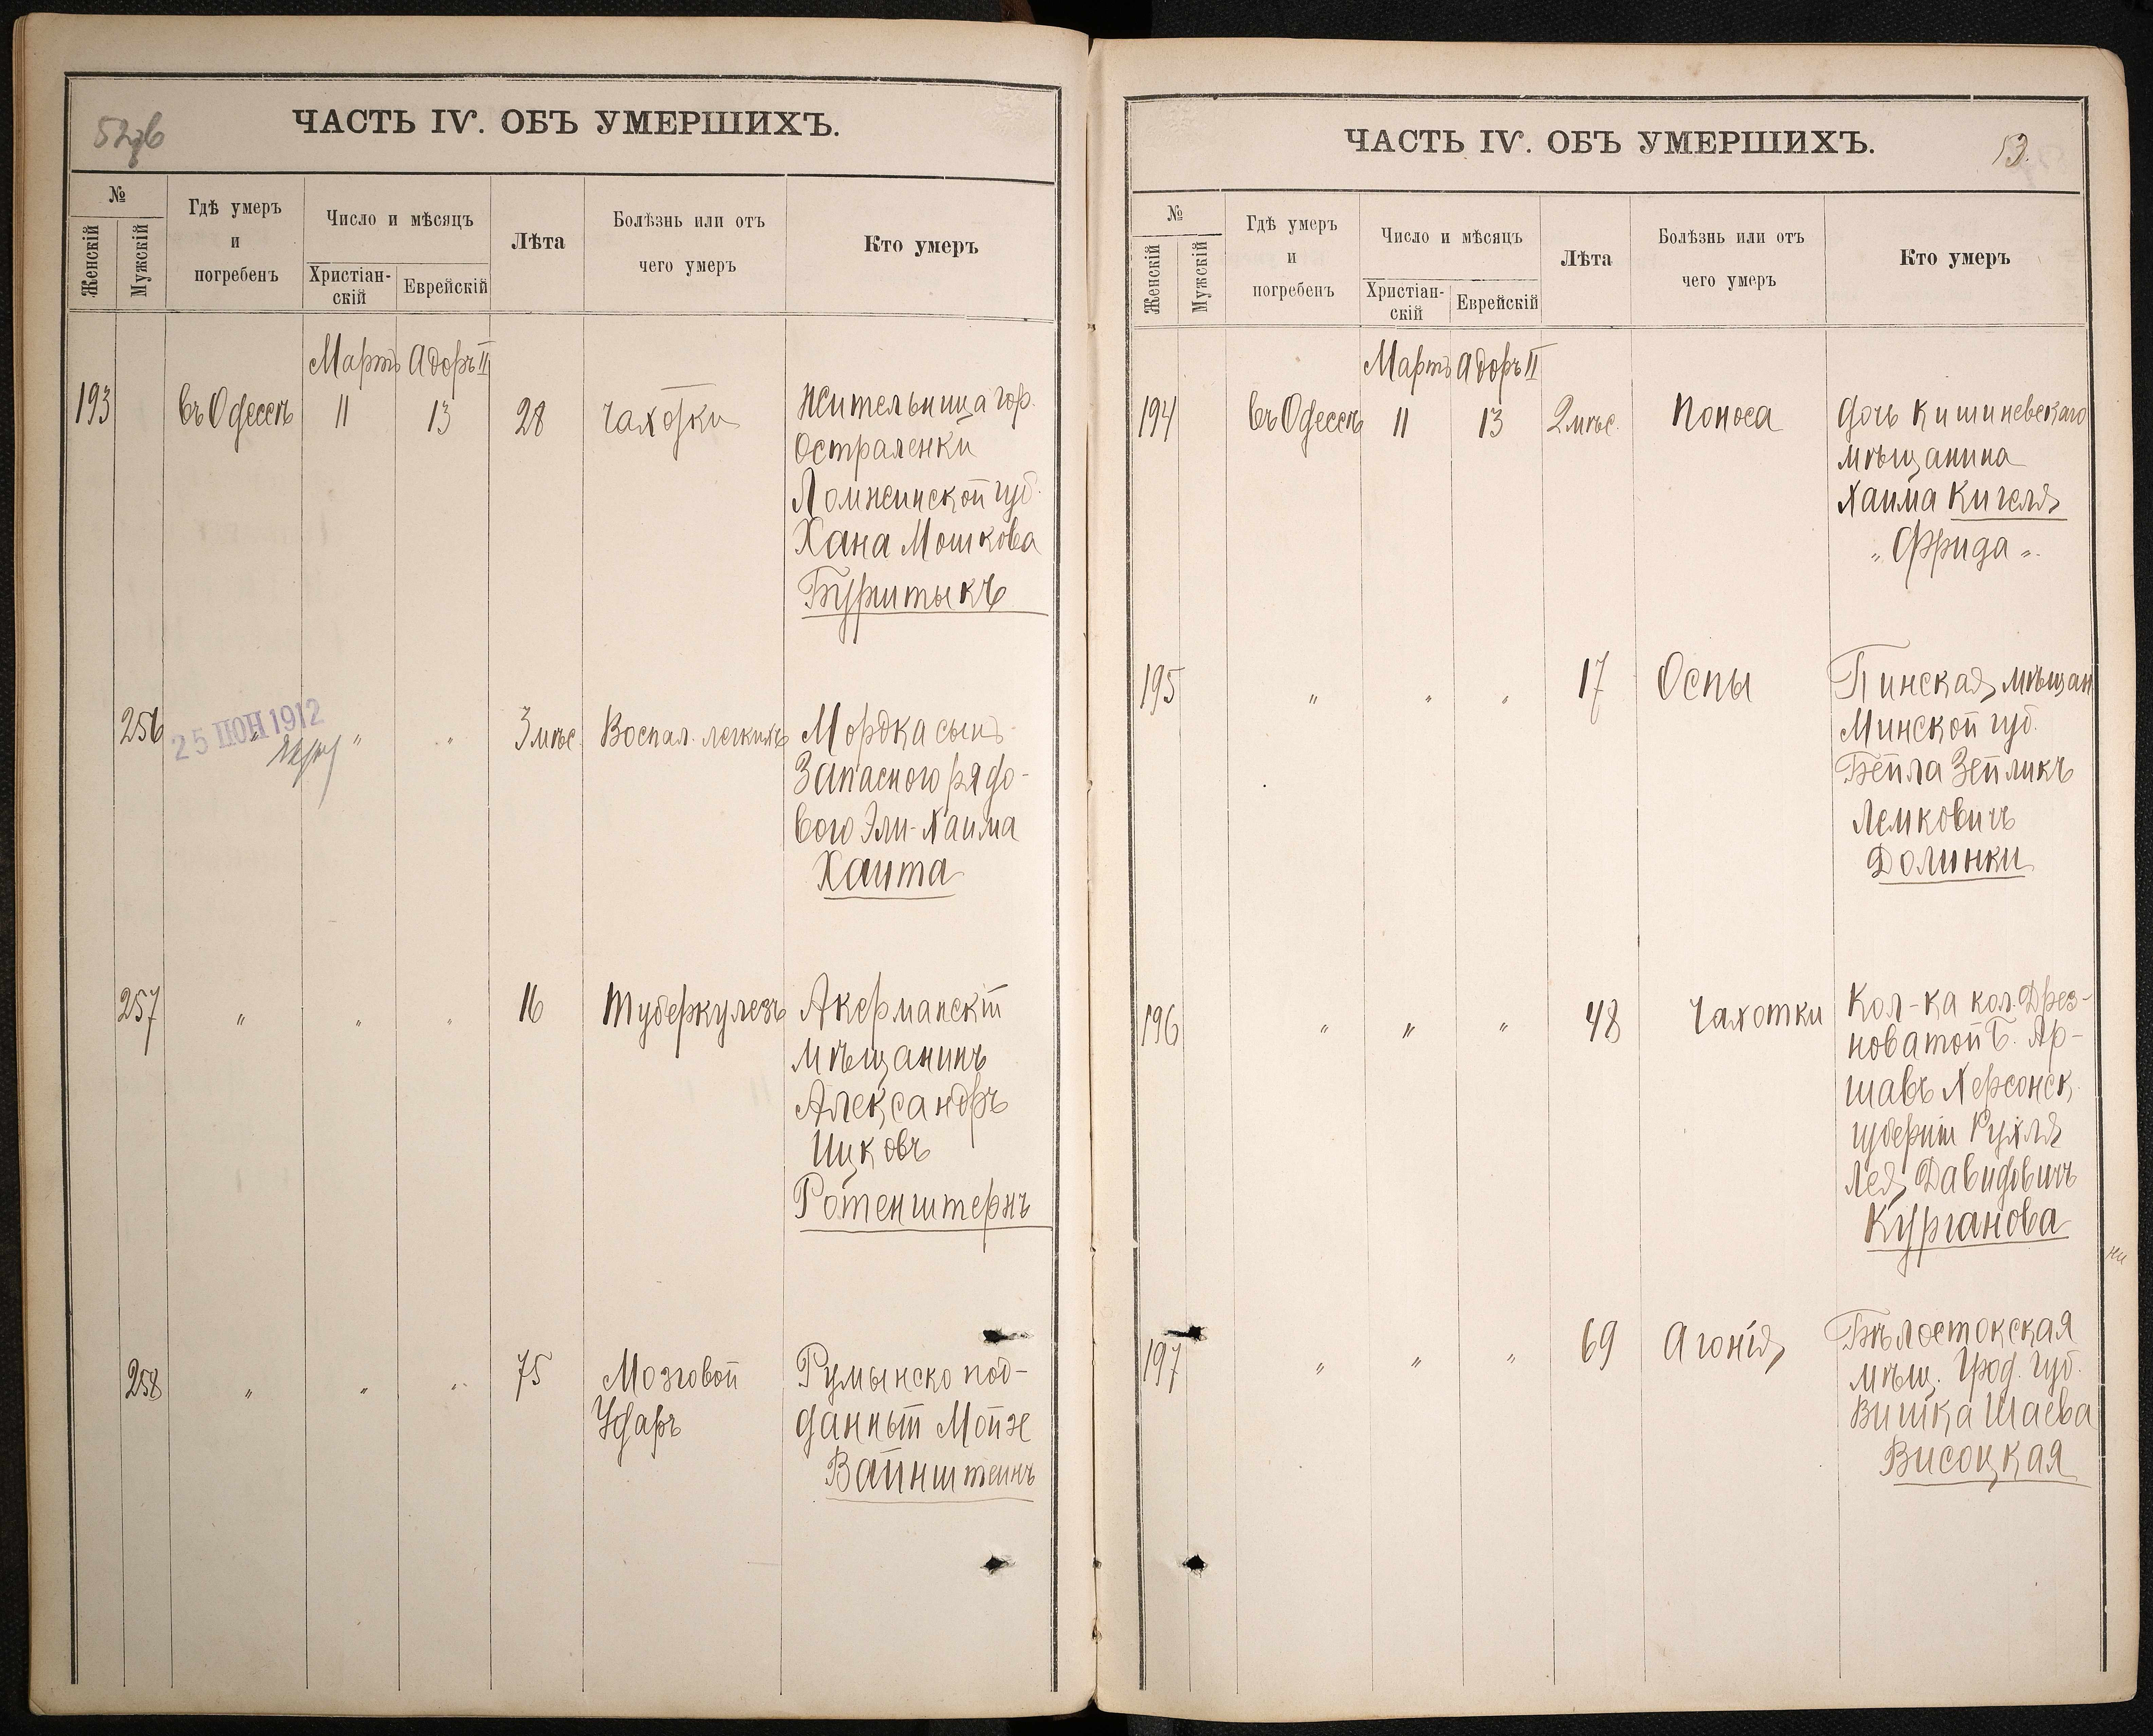 ЧАСТЬ IV. ОБЪ УМЕРШИХЪ.
№
Женскій
Мужскій
Гдѣ умеръ
и
погребенъ
Число и мѣсяцъ
Христіан-
скій
Еврейскій
Лѣта
Болѣзнь или отъ
чего умеръ
Кто умеръ
Мартъ Адоръ II
193 Въ Одессѣ 11 13 28 Чахотки Жительница гор.
Остраленки
Ломжинской губ.
Хана Мошкова
256 25 ІЮН 1912 " " 3 мѣс. Воспал. легкихъ Мордка сынъ
Запасного рядо-
вого Эли-Хаима
Хаита
257 " " " 16 Туберкулезъ Акерманскій
мѣщанинъ
Александръ
Ицковъ
Ротенштернъ
258 " " " 75 Мозговой Румынско под-
Ударъ данный Мойзе
Вайнштейнъ
ЧАСТЬ IV. ОБЪ УМЕРШИХЪ.
53.
№
Женскій
Мужскій
Гдѣ умеръ
и
погребенъ
Число и мѣсяцъ
Христіан-
скій
Еврейскій
Лѣта
Болѣзнь или отъ
чего умеръ
Кто умеръ
Мартъ Адоръ II
194 Въ Одессѣ 11 13 2 мѣс. Поноса Дочь Кишиневскаго
мѣщанина
Хаима Кигеля
" Фрида "
195 " " " 17 Оспы Пинская мѣщан
Минской губ.
Бейла Зейликъ
Лемковичъ
Долинки
196 " " " 48 Чахотки Кол-ка кол. Дрез-
новатой Б. Ар-
шавъ Херсонск.
губерніи Рухля
Лея Давидовичъ
Курганова
197 " " " 69 Агонія Бѣлостокская
мѣщ. Грод. губ.
Вишка Шаева
Висоцкая